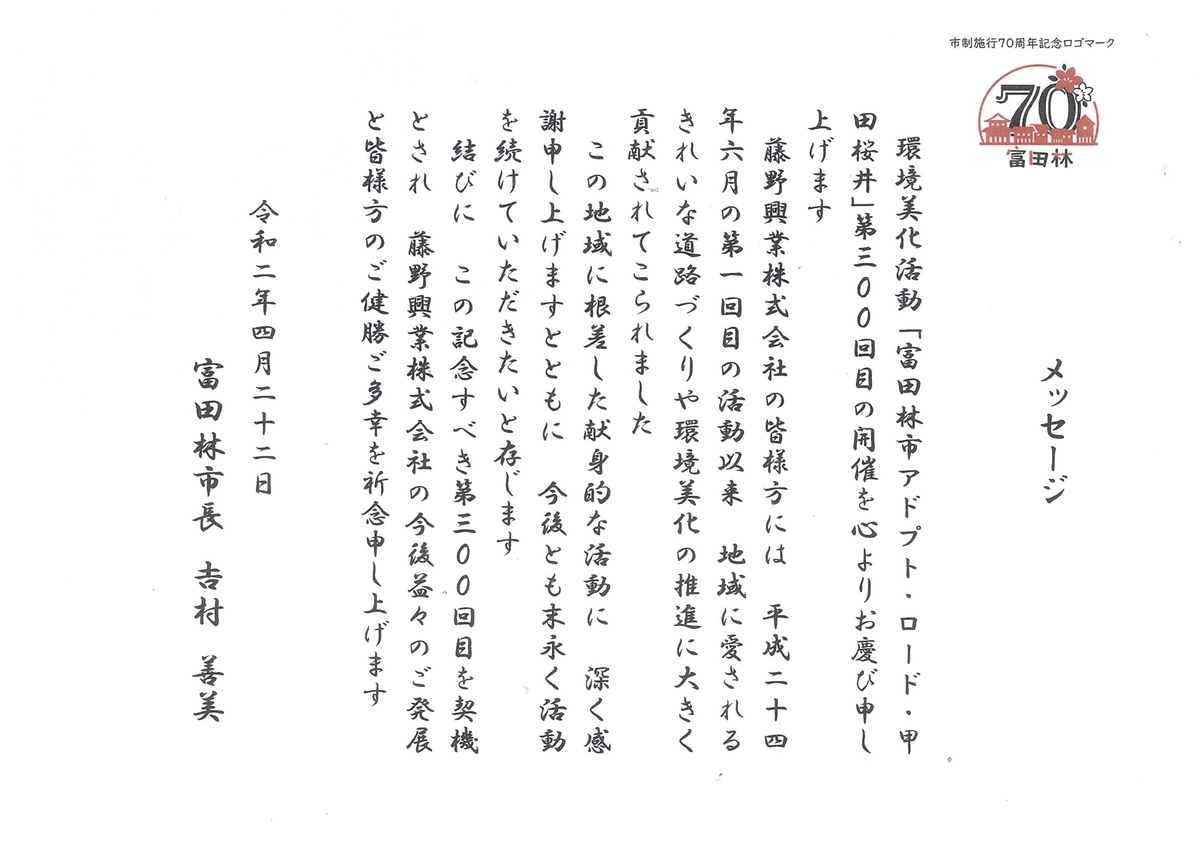 市制施行70周年記念ロゴマーク
70
富田林
メッセージ
環境美化活動「富田林市アドプト・ロード・甲
田桜井」第三００回目の開催を心よりお慶び申し
上げます
藤野興業株式会社の皆様方には　平成二十四
年六月の第一回目の活動以来　地域に愛される
きれいな道路づくりや環境美化の推進に大きく
貢献されてこられました
この地域に根差した献身的な活動に　深く感
謝申し上げますとともに　今後とも末永く活動
を続けていただきたいと存じます
結びに　この記念すべき第三００回目を契機
とされ　藤野興業株式会社の今後益々のご発展
と皆様方のご健勝ご多幸を祈念申し上げます
令和二年四月二十二日
富田林市長　吉村　善美